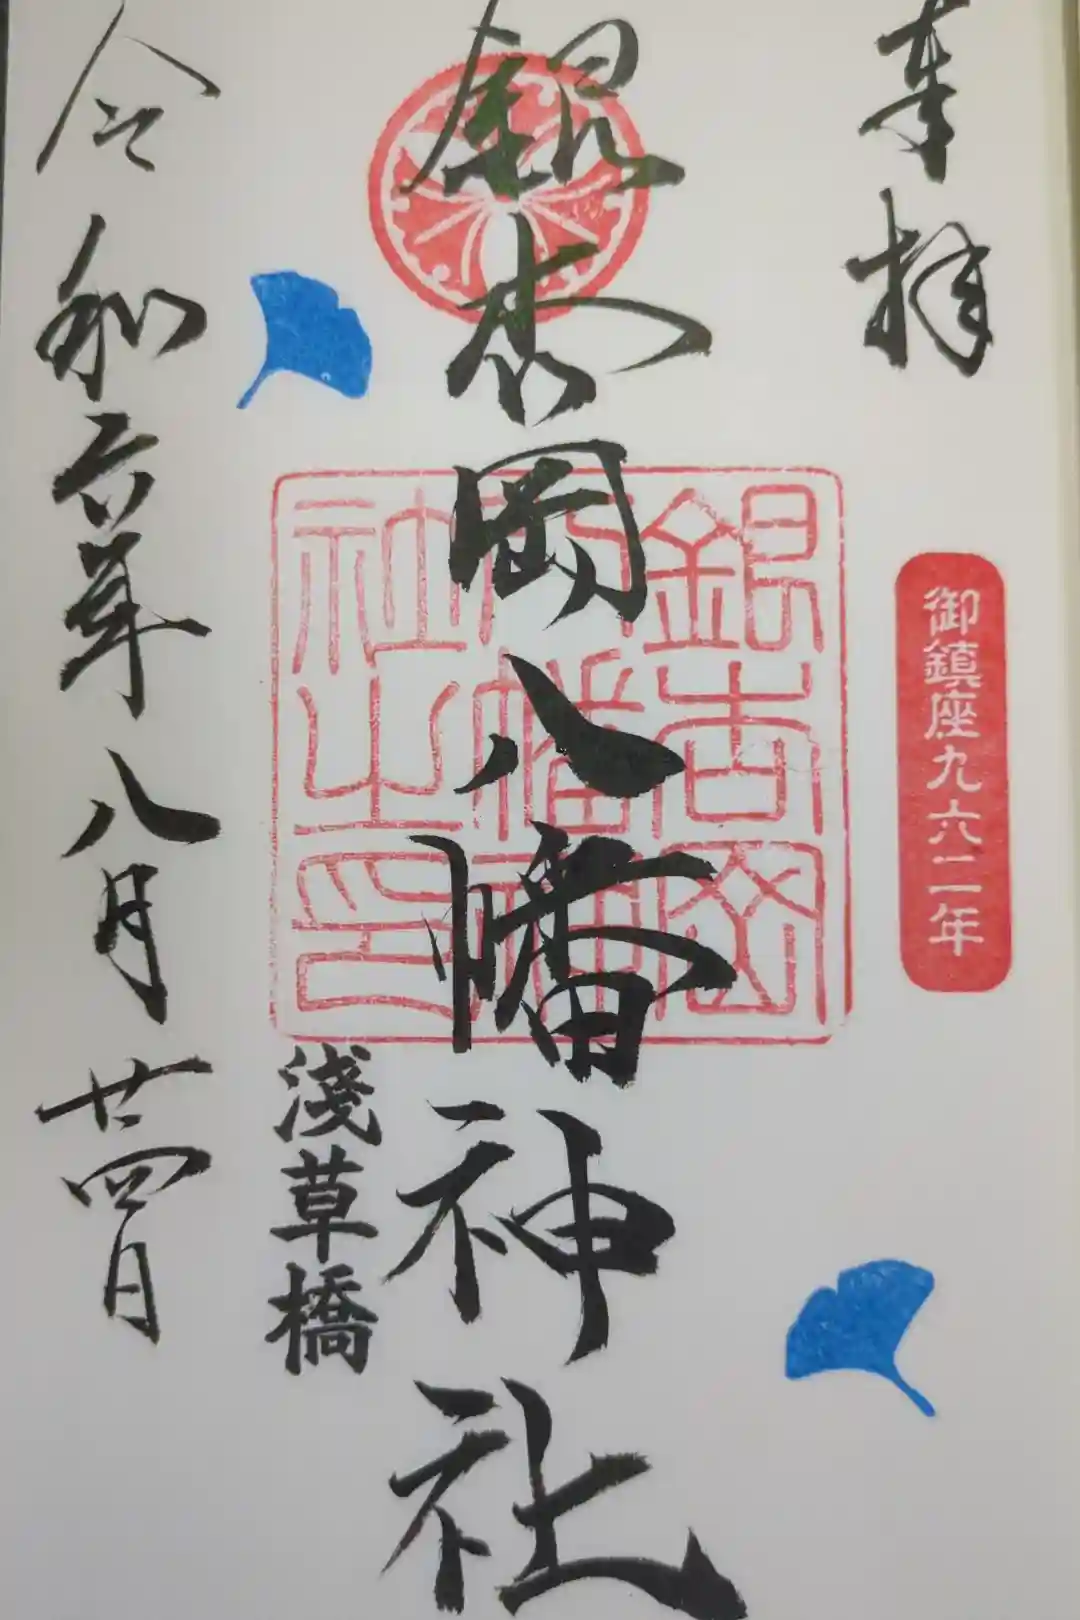 奉拝
御鎮座九六二年
銀杏岡八幡神社
銀杏岡
八幡神
社之印
浅草橋
令和六年八月廿四日